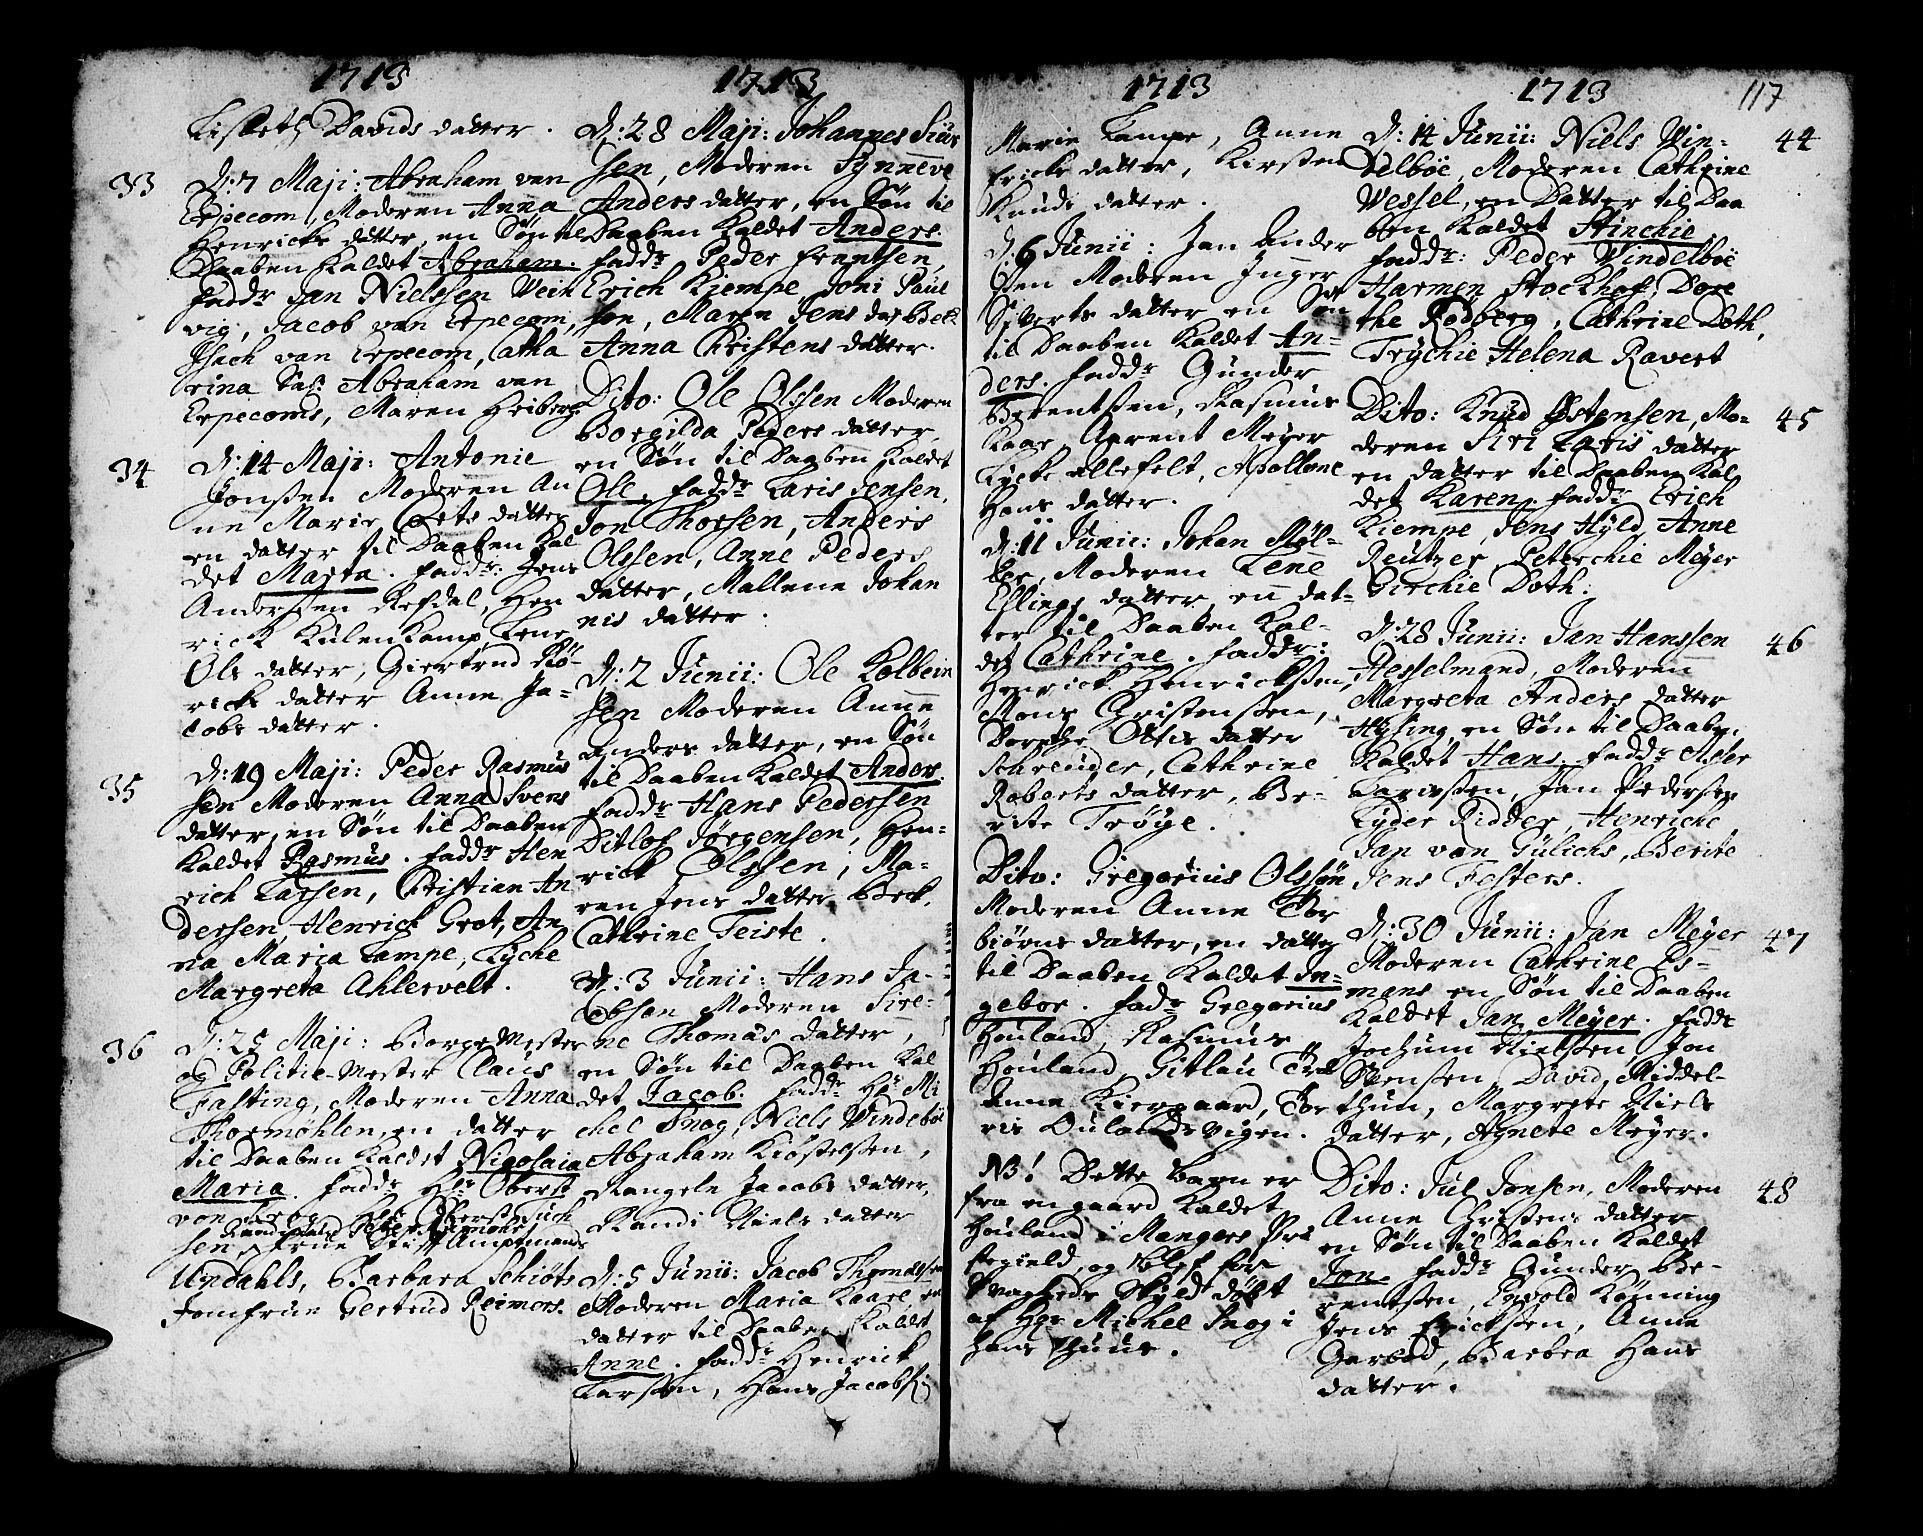 1713
Lisbeth Davids datter.
33
D: 7 Maji: Abraham van
Erpecom, Moderen Anna
Henrichs datter, en Søn til
Daaben Kaldet Abraham.
Faddr Jan Nielssen Wein
vig, Jacob van Erpecom,
Isach van Erpecom, Catha
rina Sal. Abraham van
Erpecoms, Maren Heiberg
34
D: 14 Maji: Antonie
Jonssen Moderen An
ne Marie datter
en datter til Daaben Kal
det Marta. Faddr: Jens
Anderssen Refdal, Hen
rick Külenkamp, Lene
Ols datter, Giertrud
ricks datter Anne Ja=
cobs datter.
35
D: 19 Maji: Peder Rasmus
sen Moderen Anna Svens
datter, en Søn til Daaben
Kaldet Rasmus. Faddr Hen
rich Larsen, Christian An
dersen, Henrick Grot, An
na Maria Lampe, Lyche
Margreta Ahlervelt.
36
D: 25 Maji: BorgeMester
og Politie-Mester Claus
Fasting, Moderen Anna
Thormøhlen, en datter
til Daaben Kaldet Nicolaia
Maria. Faddr Hr Oberst
von
sen, Frue Stift Amptmands
Undahls, Barbara Schiøts
Jomfrue Gertrud Reimers.
1713
D: 28 Maji: Johannes Siur
sen, Moderen Synneve
Anders datter, en Søn til
Daaben Kaldet Anders.
Faddr Peder Frantsen,
Erich Kiempe Joni Paul
sen, Maren Jens dat Bek
Anna Christens datter.
Dito: Ole Olssen Moderen
Borgilda Peders datter
en Søn til Daaben Kaldet
Ole. Faddr Laris Jensen,
Jon Thorsen, Anders
Olssen, Anne Peders
datter, Mallene Johan
nis datter.
D: 2 Junii: Ole Kolbein
sen Moderen Anne
Anders datter, en Søn
til Daaben Kaldet Anders.
Faddr Hans Pedersen
Ditlof Jørgensen, Hen=
rick Olssen, Ma=
ren Jens datter Beck.
Cathrine Teiste.
D: 3 Junii: Hans Ja=
cobsen Moderen Sire=
ne Thomas datter,
en Søn til Daaben Kal
det Jacob. Faddr Hr Mi
chel Snog, Niels Windelbøe
Abraham Kiøstelssen,
Rangele Jacobs datter,
Randi Niels datter
D: 5 Junii: Jacob Thomassen
Moderen Maria Kaare, en
datter til Daaben Kaldet
Anne. Faddr Henrick
Larssen, Hans Jacobs:
1713
Marie Lampe, Anne
Ericks datter, Kirsten
Knuds datter.
D: 6 Junii: Jan Ander
sen Moderen Inger
Siverts datter en Søn
til Daaben Kaldet An=
ders. Faddr Gunder
Berentssen, Rasmus
Kaar, Arent Meyer
Lycke Allefelt, Apollone
Hans datter.
D: 11 Junii: Johan Møl=
ler, Moderen Lene
Eslings datter, en dat=
ter til Daaben Kal=
det Cathrine. Faddr:
Henrick Henrickssen,
Mons Christenssen,
Dorthe Ottis datter
Schreuder, Cathrine
Roberts datter, Be=
rite Trøye.
Dito: Gregorius Olssøn
Moderen Anne Tor
biørns datter, en datter
til Daaben Kaldet In=
gebor. Fadr Gregorius
Houland, Rasmus
Houland, Gitlau
Anne Kiergaard, Tor
ris Oulandsvigen.
NB! Dette barn er
fra en gaard Kaldet
Houland i Mangers Præ
stegield, og blef for
Svagheds Skyld døbt
af Hr Michel Snog i
hans huus.
1713
117
44
D: 14 Junii: Niels Win=
delbøe, Moderen Cathrine
Wessel, en Datter til Daa
ben Kaldet Stinchie.
Faddr: Peder Windelbøe
Harmen Stockhof, Dore
the Rodberg, Cathrine Doth,
Trychie Helena Ravert
45
Dito: Knud Østensen, Mo=
deren Siri Laris datter
en datter til Daaben Kal
det Karen. Faddr Erich
Kiempe, Jens Hyld, Anne
Reutzer, Peterchie Meyer
Girchie Doth.
46
D: 28 Junii: Jan Hanssen
Hesselmand, Moderen
Margreta Anders datter
Hysing, en Søn til Daaben
Kaldet Hans. Faddr Asser
Larssen, Jan Pedersen
Lyder Ridder, Henriche
Jan van Gülichs, Berite
Jens Festers.
47
D: 30 Junii: Jan Meyer
Moderen Cathrine Es=
mans en Søn til Daaben
Kaldet Jan Meyer. Faddr
Jochum Nielssen, Jon
Svenssen, David Middel=
thun, Margrete Niels
datter, Agnete Meyer.
48
Dito: Jul Jonsen, Moderen
Anne Christens datter
en Søn til Daaben Kaldet
Jon. Faddr Gunder Be=
rentssen, Engold Kønning
Jens Erickssen, Anne
Garbod, Barbra Hans
datter.